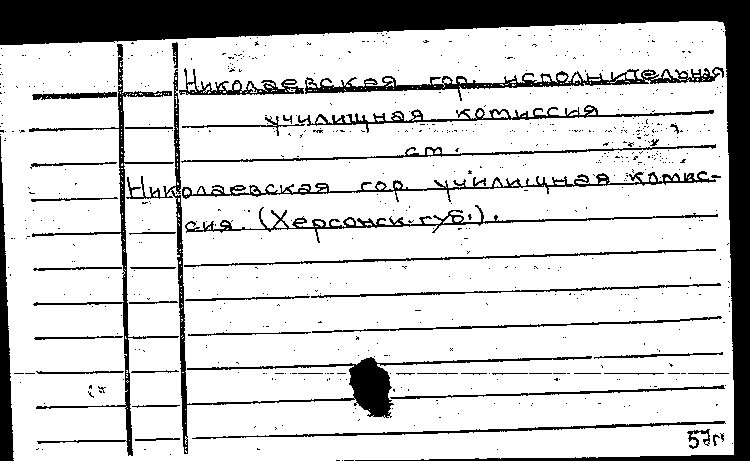 Николаевская гор. исполнительная
училищная комиссия
см.
Николаевская гор. училищная комис-
сия. (Херсонск. губ.).